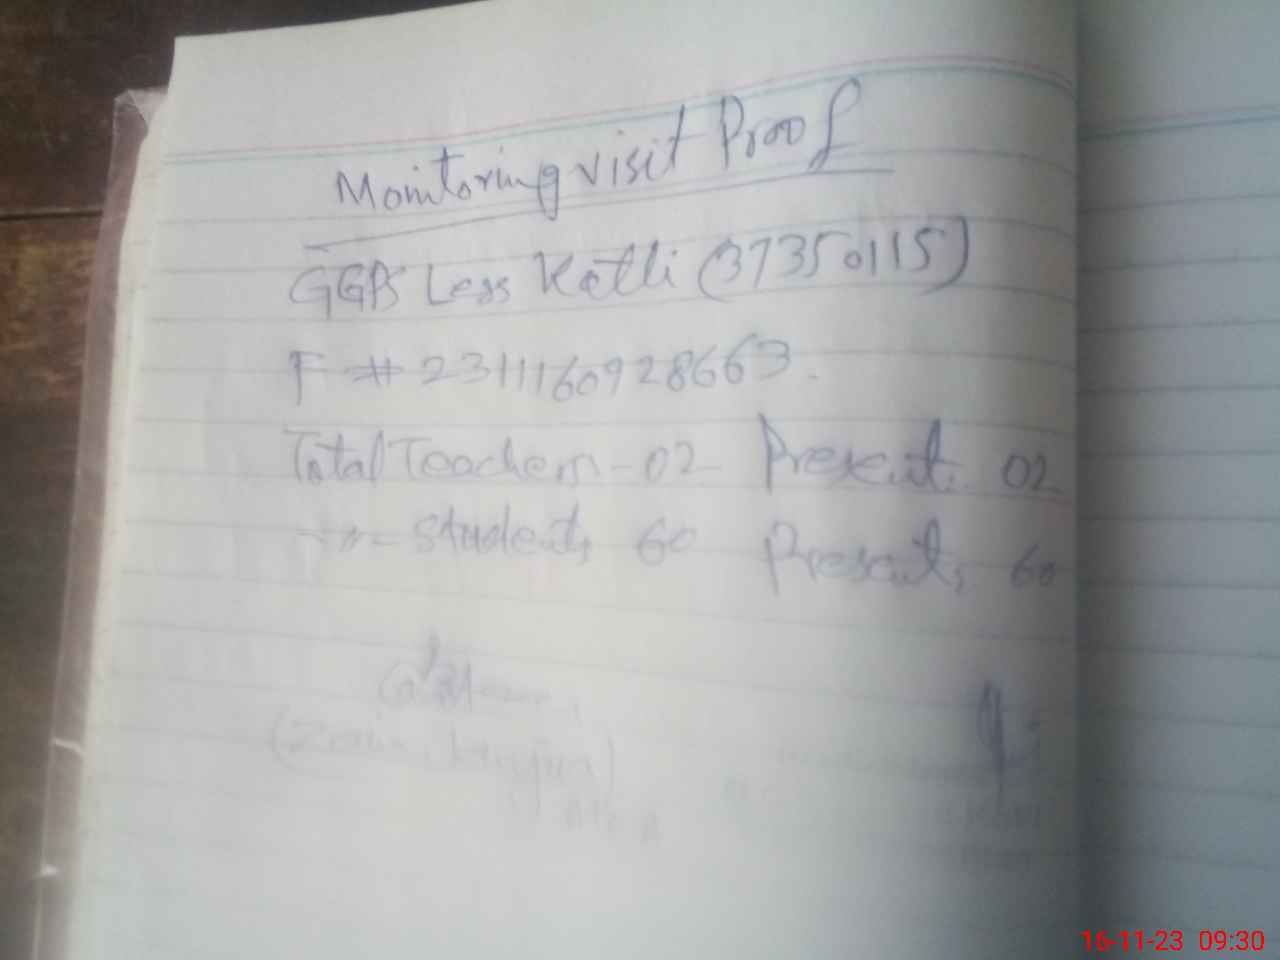 Monitoring visit Proof
GGPS Less Katli (37350115)
F # 2311160928663.
Total Teachers - 02 Present. 02
-〃- Students 60 Presents 60
16-11-23 09:30